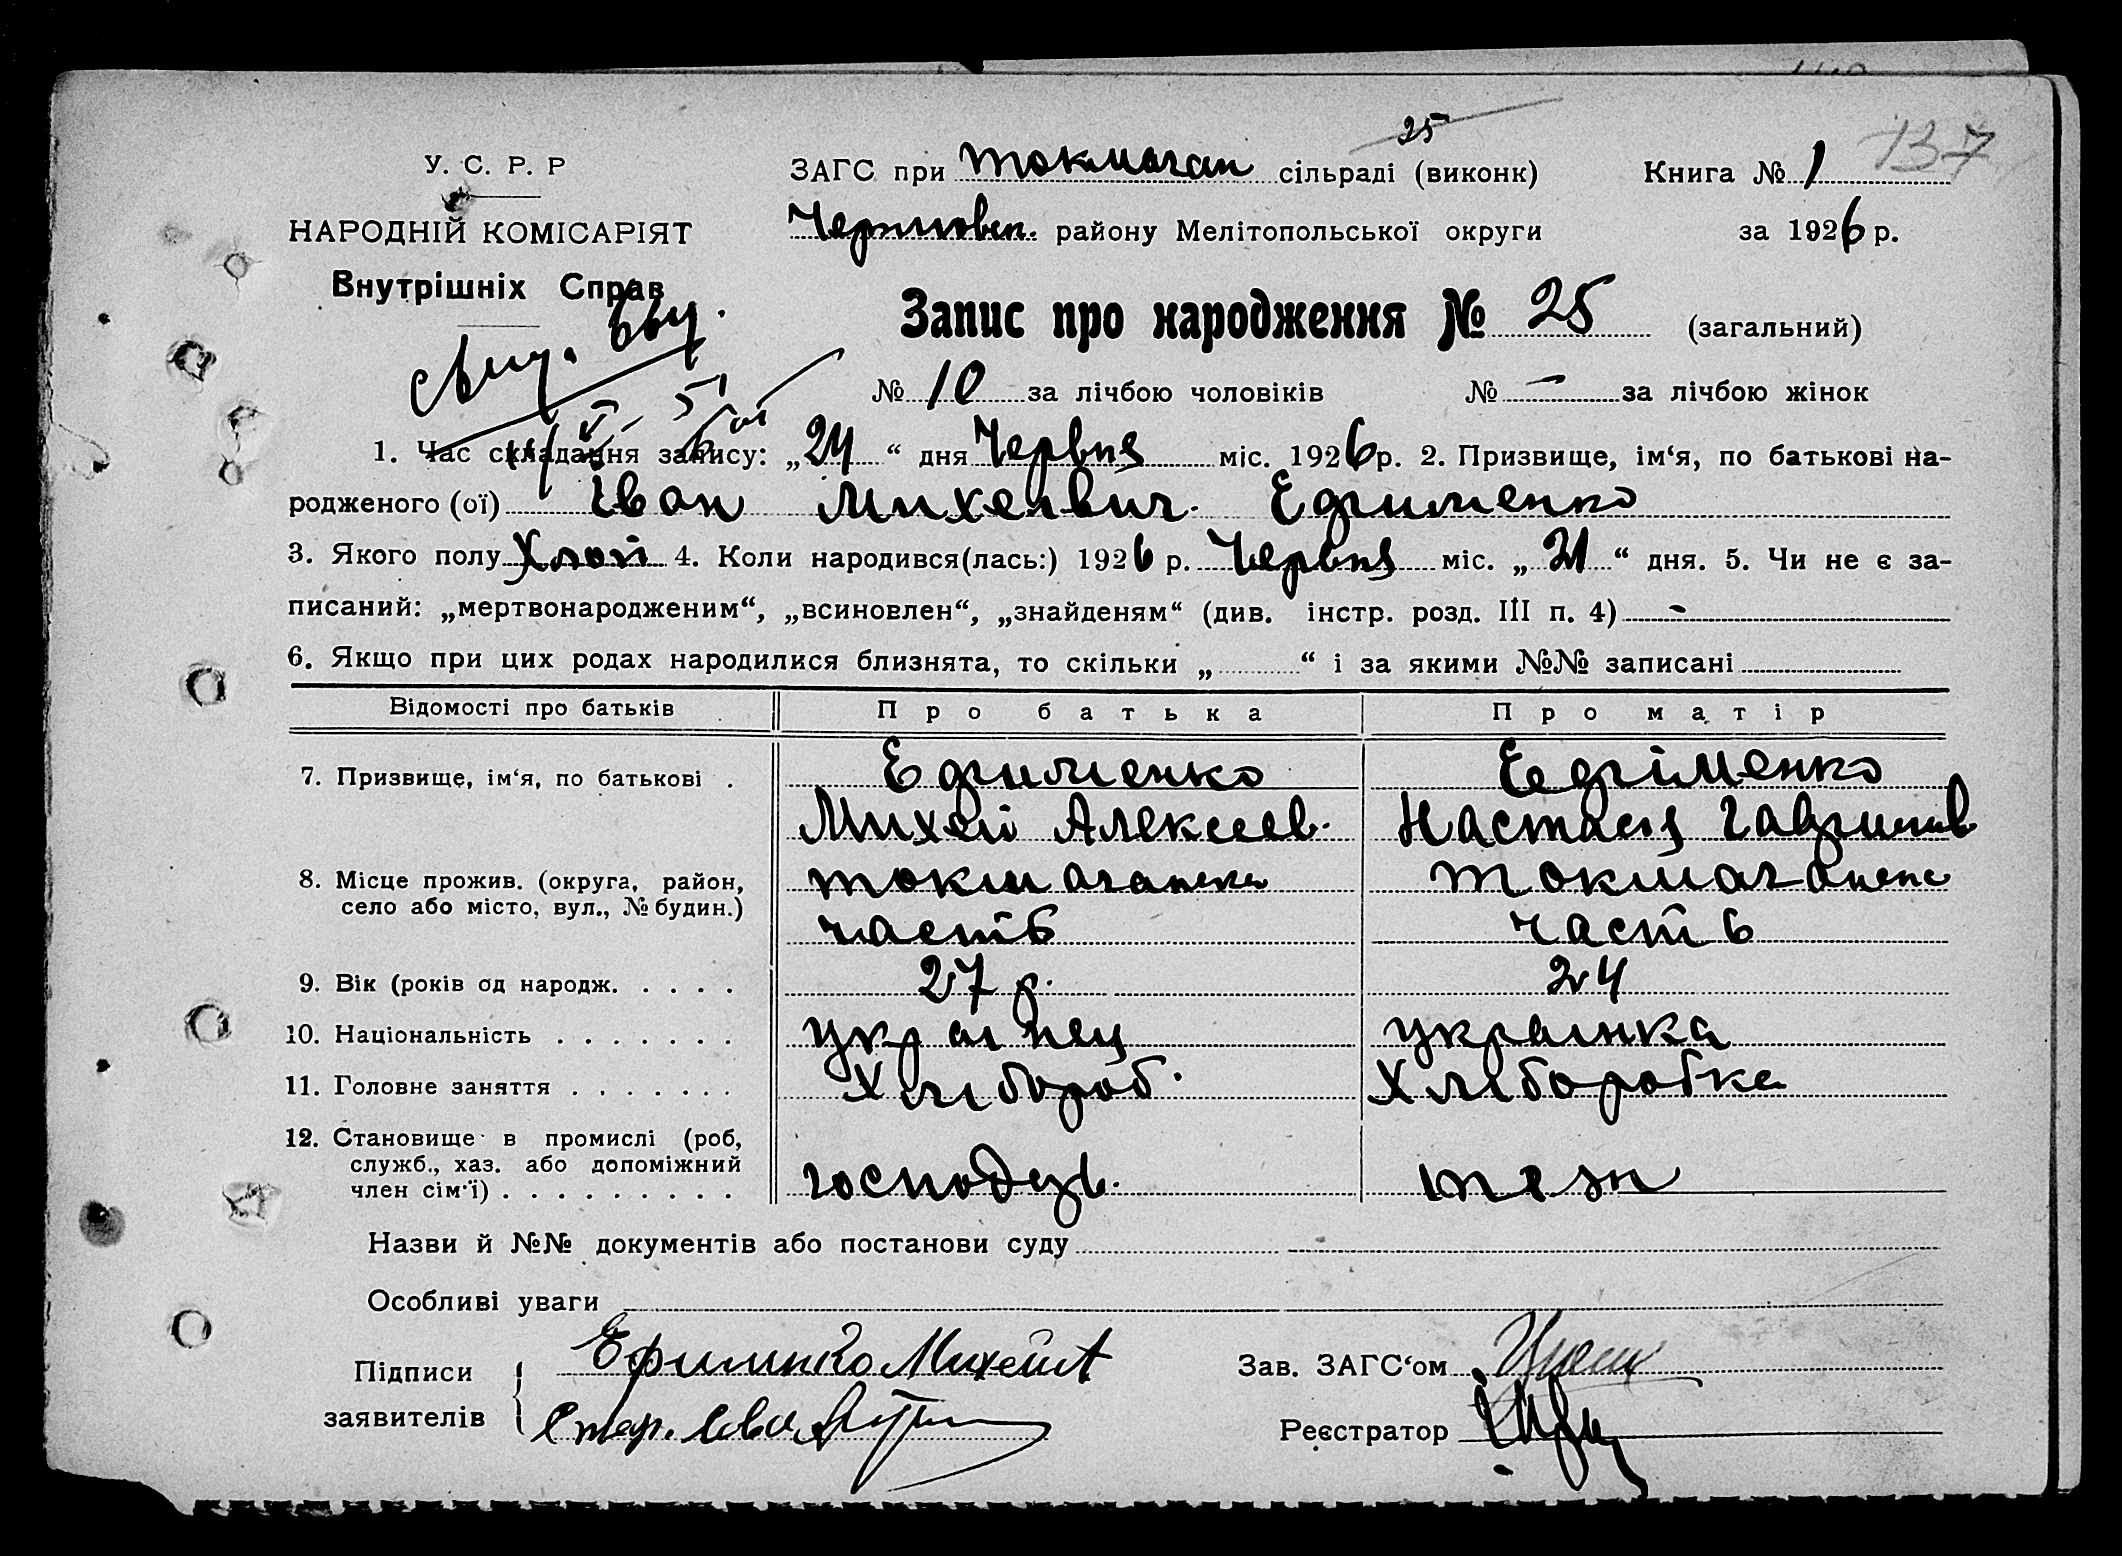 25
У. С. Р. Р
ЗАГС при Токмачан сільраді (виконк)
Книга № 1 137
НАРОДНІЙ КОМІСАРІЯТ
району Мелітопольської округи
за 1926 р.
Внутрішніх Справ
Запис про народження № 25 (загальний)
№ 10 за лічбою чоловіків № – за лічбою жінок
1. Час складання запису: „24“ дня Червня міс. 1926 р. 2. Призвище, ім‘я, по батькові на-
родженого (ої) Іван Михеевич Ефименко
3. Якого полу Хлоп 4. Коли народився(лась:) 1926 р. Червня міс. „21“ дня. 5. Чи не є за-
писаний: „мертвонародженим“, „всиновлен“, „знайденям“ (див. інстр. розд. III п. 4) -
6. Якщо при цих родах народилися близнята, то скільки „ “ і за якими №№ записані
Відомості про батьків Про батька Про матір
7. Призвище, ім‘я, по батькові . Ефименко Ефіменко
Михей Алексеев. Настасія Гаврилов
8. Місце прожив. (округа, район,
село або місто, вул., № будин.)
часть часть
9. Вік (років од народж. . . . . 27 р. 24
10. Національність . . . . . . . українец українка
11. Головне заняття . . . . . . . Хлібороб. Хліборобка
12. Становище в промислі (роб,
служб., хаз. або допоміжний
член сім‘ї) . . . . . . . . . господарь. теж
Назви й №№ документів або постанови суду
Особливі уваги
Підписи
заявителів
Ефименко Михей А
Зав. ЗАГС‘ом
Реєстратор